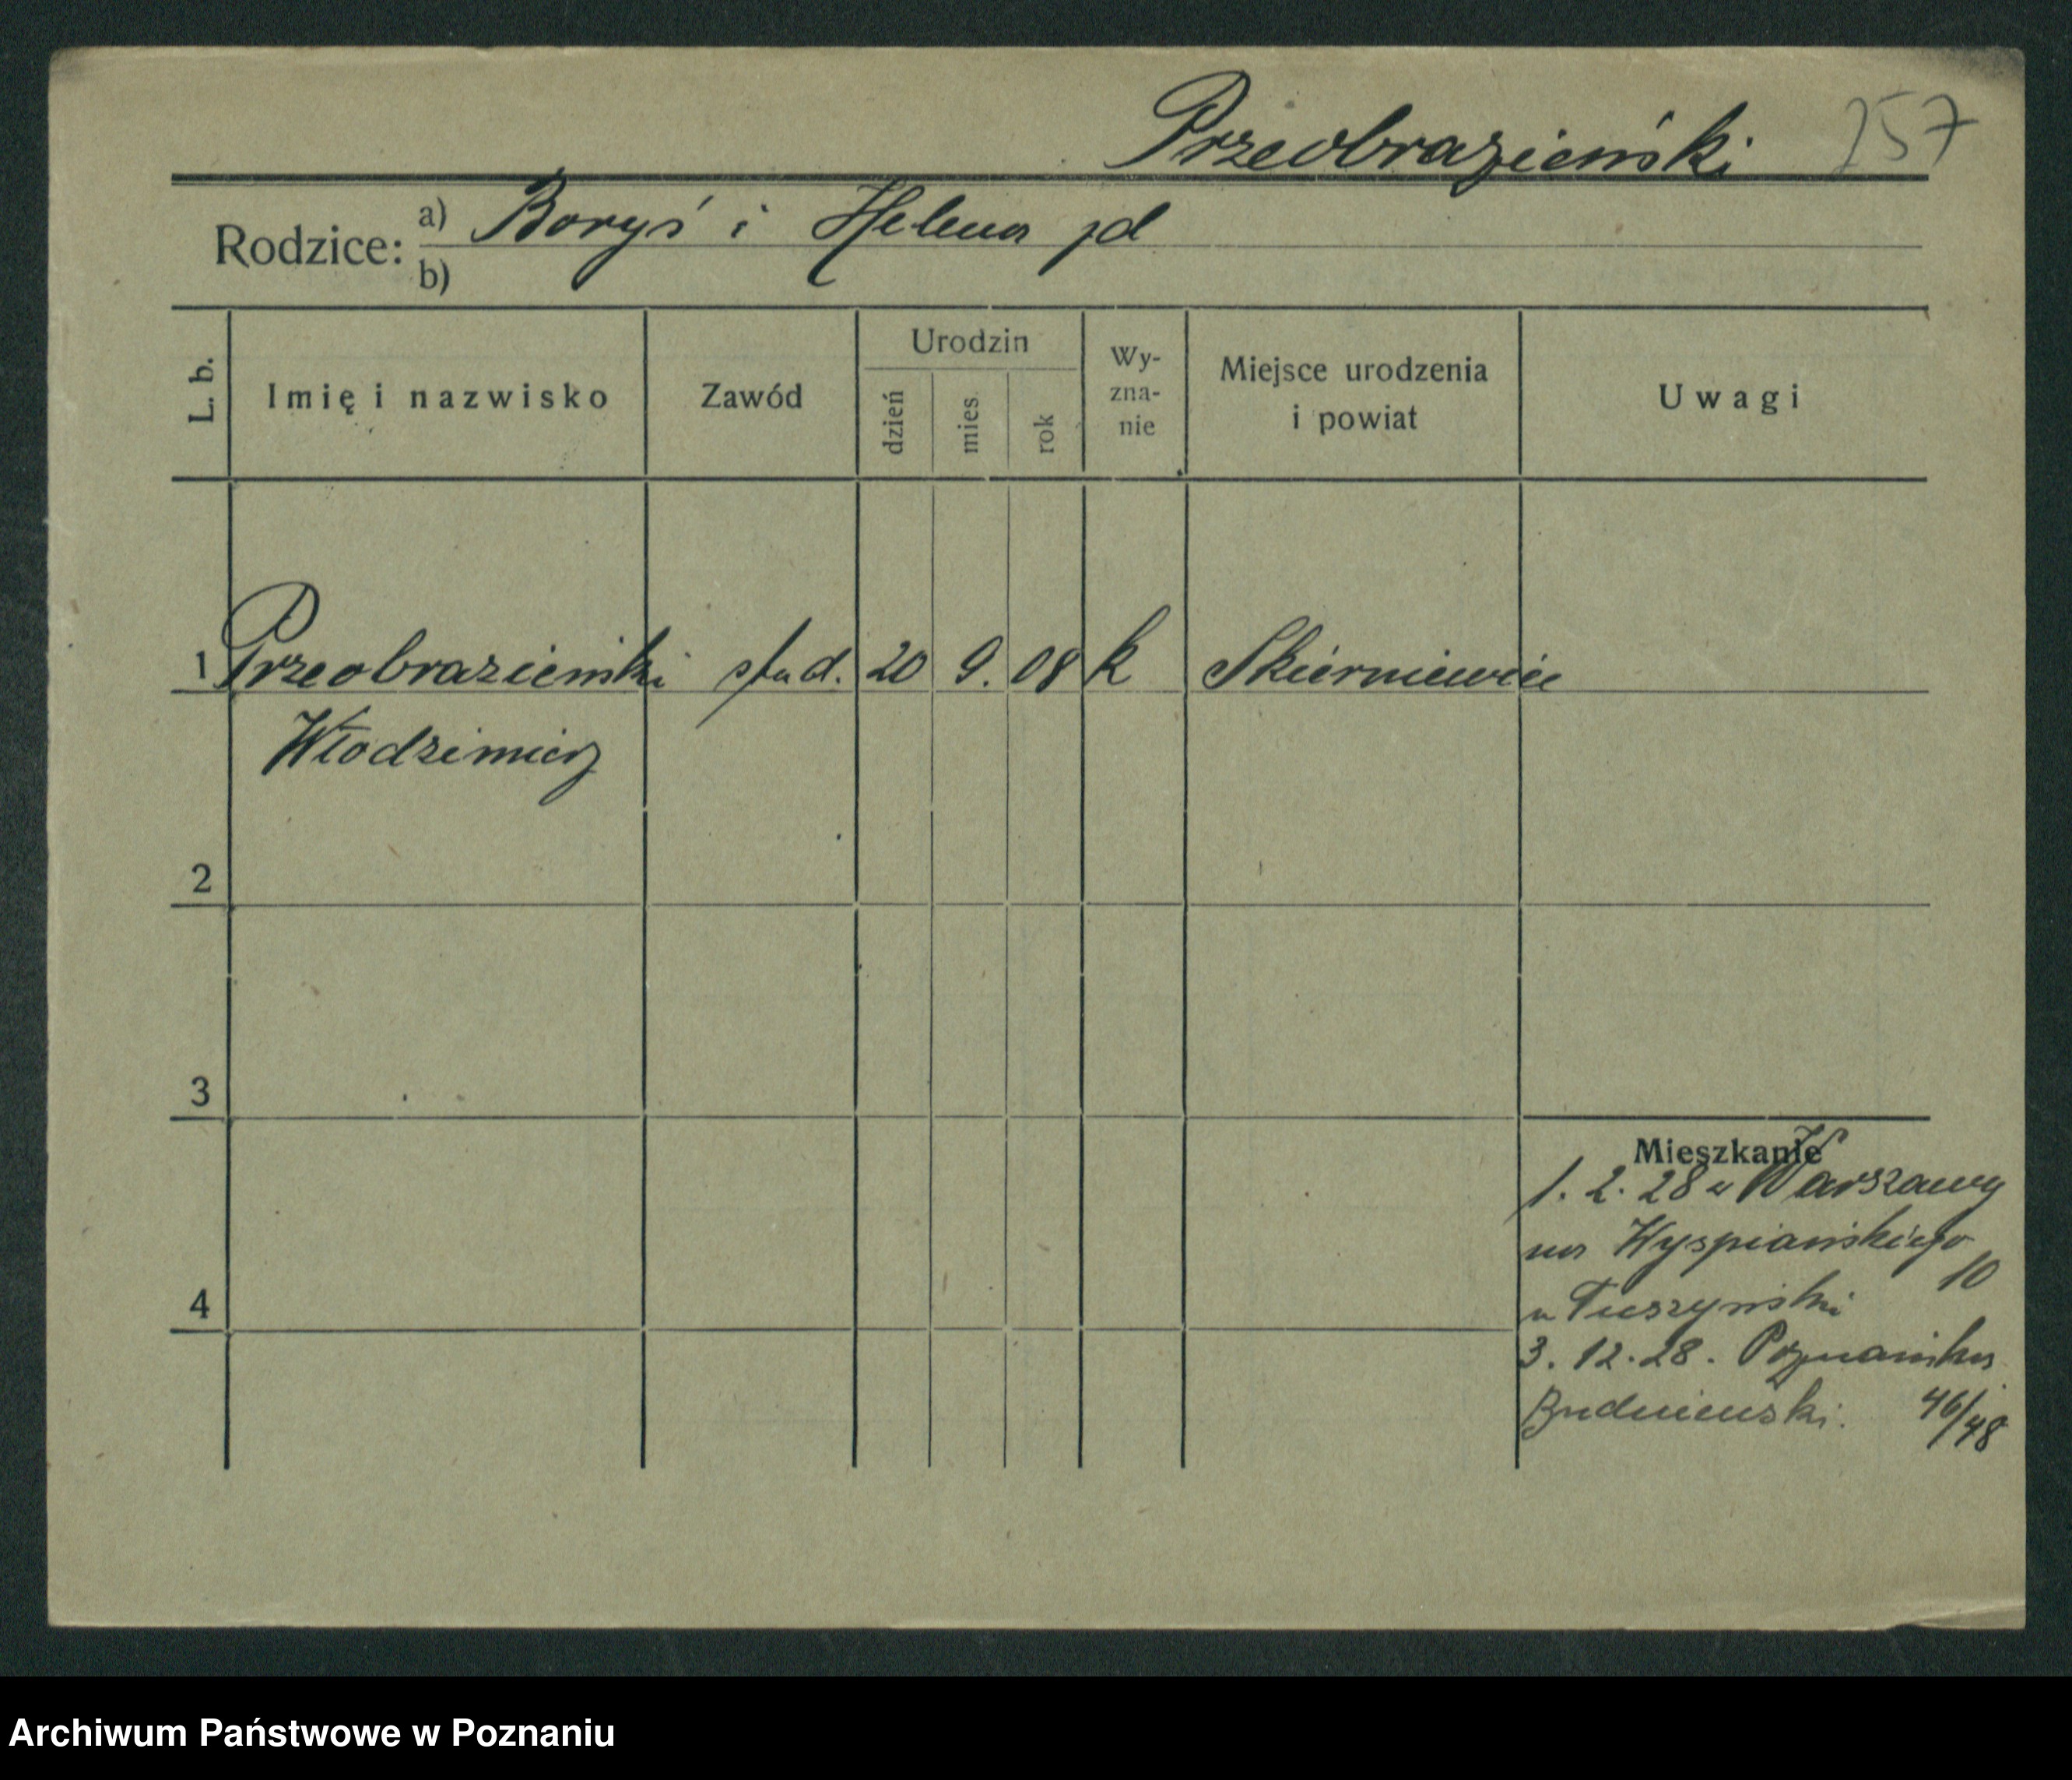 Przeobrazieński 257
Rodzice: a) Boryś i Helena jd
b)
L. b.
Imię i nazwisko
Zawód
Urodzin
dzień
mies
rok
Wy-
zna-
nie
Miejsce urodzenia
i powiat
Uwagi
1 Przeobrazieński stud. 20 9. 08 k Skierniewice
Włodzimierz
2
3
4
Mieszkanie
1. 2. 28 z Warszawy
na Wyspiańskiego
10
u Tuszyński
3. 12. 28. Poznańska
46/48
Archiwum Państwowe w Poznaniu